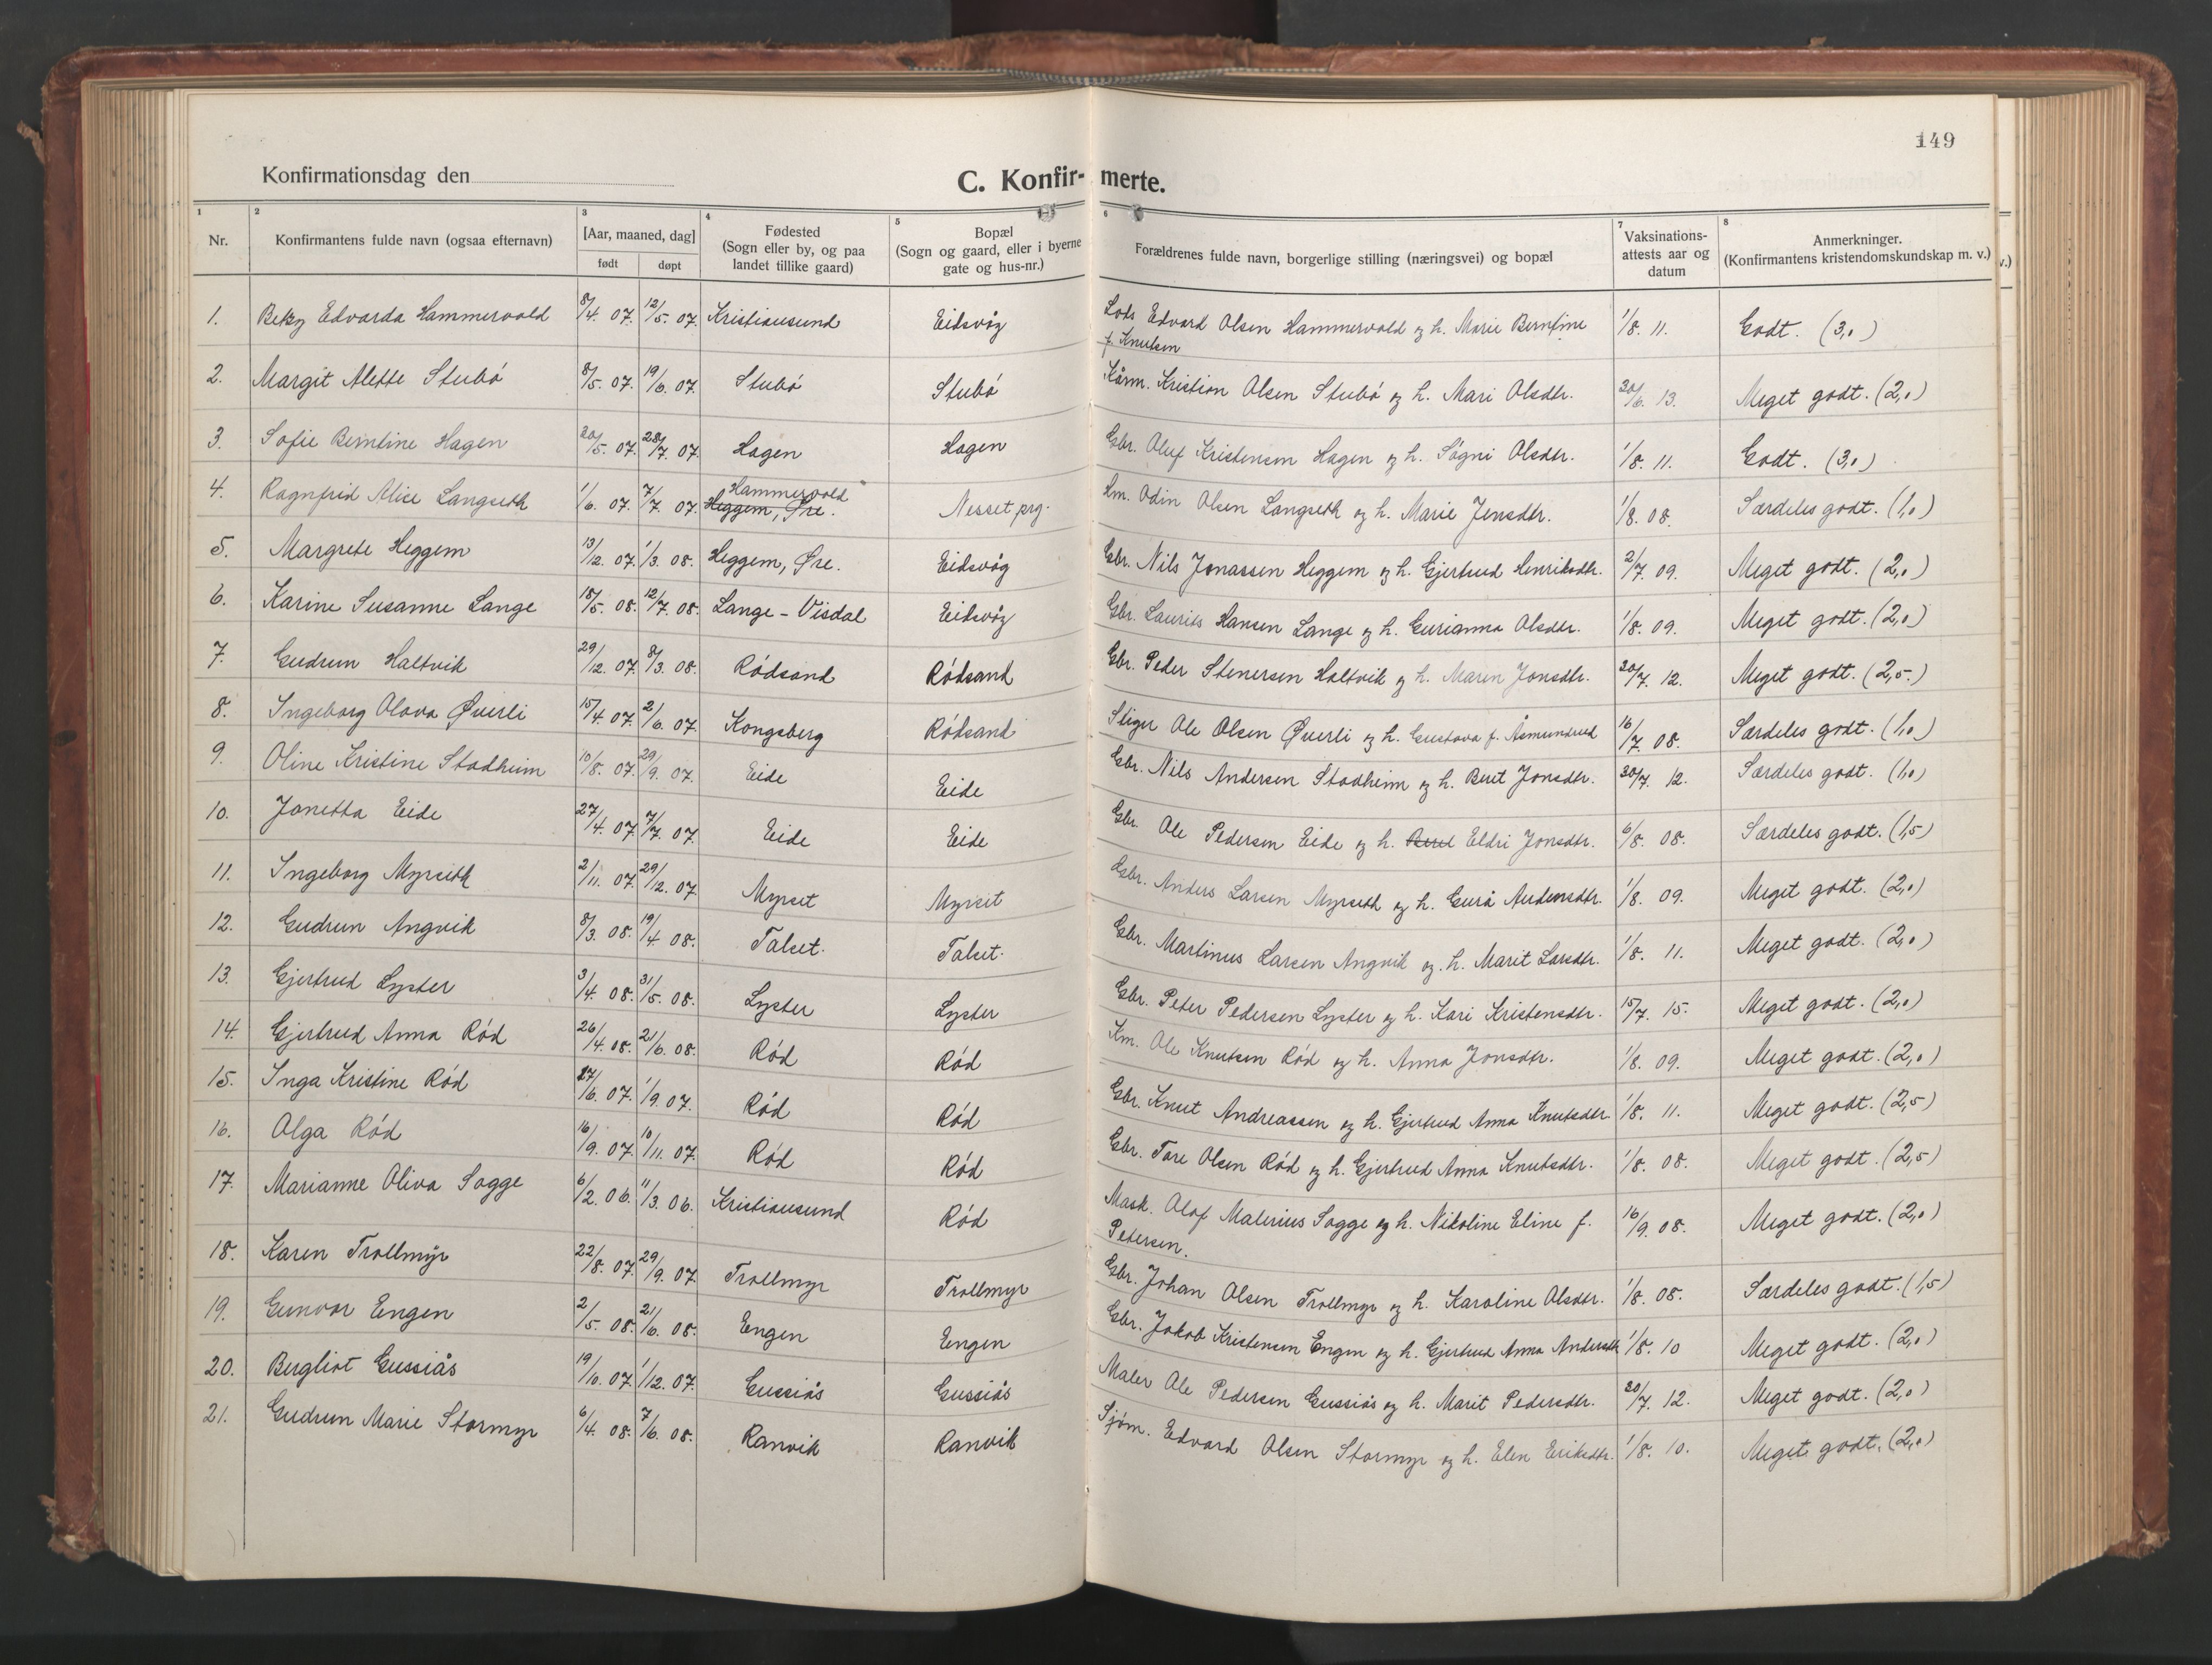 149
Konfirmationsdag den
C. Konfir- merte.
1 2 3 4 5 6 7 8
Nr. Konfirmantens fulde navn (ogsaa efternavn) [Aar, maaned, dag] født døpt Fødested (Sogn eller by, og paa landet tillike gaard) Bopæl (Sogn og gaard, eller i byerne gate og hus-nr.) Forældrenes fulde navn, borgerlige stilling (næringsvei) og bopæl Vaksinations- attests aar og datum Anmerkninger. (Konfirmantens kristendomskundskap m. v.)
1. Betzy Edvarda Hammervold 8/4. 07. 12/5. 07. Kristiansund Eidsvåg Lods Edvard Olsen Hammervold og h. Marie Berntine 1/8. 11. Godt. (3,0)
f. Knutsen
2. Margit Alette Stubö 8/5. 07. 19/6. 07. Stubö Stubö Kårm. Kristian Olsen Stubö og h. Mari Olsdtr. 30/6. 13. Meget godt. (2,0)
3. Sofie Berntine Hagen 20/5. 07. 28/7. 07. Hagen Hagen Gbr. Oluf Kristensen Hagen og h. Sögni Olsdtr. 1/8. 11. Godt. (3,0)
4. Ragnfrid Alice Langseth 1/6. 07. 7/7. 07. Hammervold Heggem, Øre. Nesset prg. Hm. Odin Olsen Langseth og h. Marie Jensdtr. 1/8. 08. Særdeles godt. (1,0)
5. Margrete Heggem 13/12. 07. 1/3. 08. Heggem, Øre. Eidsvåg Gbr. Nils Jonassen Heggem og h. Gjertrud Henriksdtr. 2/7. 09. Meget godt. (2,0)
6. Karine Susanne Lange 18/5. 08. 12/7. 08. Lange - Visdal Eidsvåg Gbr. Laurits Hansen Lange og h. Gurianna Olsdtr. 1/8. 09. Meget godt. (2,0)
7. Gudrun Haltvik 29/12. 07. 8/3. 08. Rödsand Rödsand Gbr. Peder Stenersen Haltvik og h. Maren Jonsdtr. 30/7. 12. Meget godt. (2,5.)
8. Ingeborg Olava Øverli 15/4. 07. 2/6. 07. Kongsberg Rödsand Stiger Ole Olsen Øverli og h. Gustava f. Åsmundrud 16/7. 08. Særdeles godt. (1,0)
9. Oline Kristine Stadheim 10/8. 07. 29/9. 07. Eide Eide Gbr. Nils Andersen Stadheim og h. Beret Jonsdtr. 30/7. 12. Særdeles godt. (1,0)
10. Janetta Eide 27/4. 07. 7/7. 07. Eide Eide Gbr. Ole Pedersen Eide og h. Beret Eldri Jonsdtr. 6/8. 08. Særdeles godt. (1,5)
11. Ingeborg Myrseth 2/11. 07. 29/12. 07. Myrset Myrset Gbr. Anders Larsen Myrseth og h. Gurå Andersdtr. 1/8. 09. Meget godt. (2,0)
12. Gudrun Angvik 8/3. 08. 19/4. 08. Talset. Talset. Gbr. Martinus Larsen Angvik og. h. Marit Larsdtr. 1/8. 11. Meget godt. (2,0)
13. Gjertrud Lyster 3/4. 08. 31/5. 08. Lyster Lyster Gbr. Peter Pedersen Lyster og h. Kari Kristensdtr. 15/7. 15. Meget godt. (2,0)
14. Gjertrud Anna Röd 26/4. 08. 21/6. 08. Röd Röd Km. Ole Knutsen Röd og h. Anna Jonsdtr. 1/8. 09. Meget godt. (2,0)
15. Inga Kristine Röd 27/6. 07. 1/9. 07. Röd Röd Gbr. Knut Andreassen og h. Gjertrud Anna Knutsdtr. 1/8. 11. Meget godt. (2,5)
16. Olga Röd 16/9. 07. 10/11. 07. Röd Röd Gbr. Tore Olsen Röd og h. Gjertrud Anna Knutsdtr. 1/8. 08. Meget godt. (2,5)
17. Marianne Oliva Sogge 6/2. 06. 11/3. 06. Kristiansund Röd Mask. Olaf Malerius Sogge og h. Nikoline Eline f. 16/9. 08. Meget godt. (2,0)
Petersen.
18. Karen Trollmyr 22/8. 07. 29/9. 07. Trollmyr Trollmyr Gbr. Johan Olsen Trollmyr og h. Karoline Olsdtr. 1/8. 08. Særdeles godt. (1,5)
19. Gunvor Engen 2/5. 08. 21/6. 08. Engen Engen Gbr. Jakob Kristensen Engen og h. Gjertrud Anna Andersdtr 1/8. 10 Meget godt. (2,0)
20. Bergliot Gussiås 19/10. 07. 1/12. 07. Gussiås Gussiås Maler Ole Pedersen Gussiås og h. Marit Pedersdtr. 20/7. 12. Meget godt. (2,0)
21. Gudrun Marie Stormyr 6/4. 08. 7/6. 08. Ranvik Ranvik Sjöm. Edvard Olsen Stormyr og h. Elen Eriksdtr. 1/8. 10. Meget godt. (2,0)